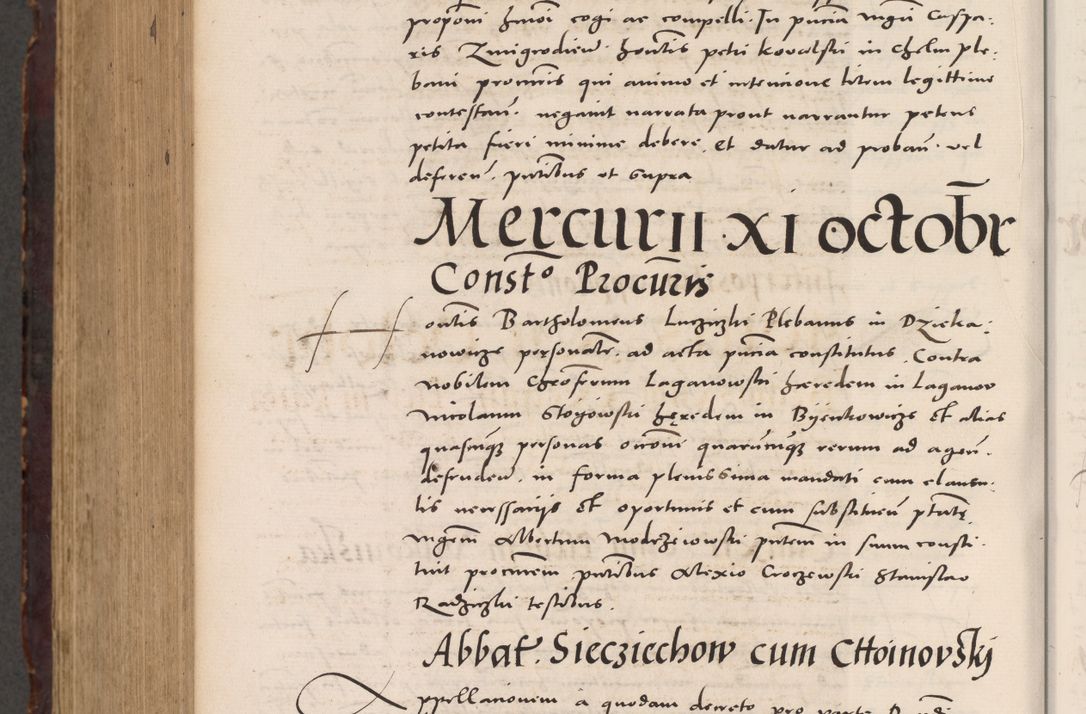 proponi hmoi cogi ac compelli. In pncia mgri Caspa:
ris Zmigrodien. hontis petri kowalski in Chelm ple:
bani procuris qui animo et intencione litem legittime
contestan. negauit narrata prout narrantur petens
petita fieri minime debere, Et datur ad proban. vel
deferen. pntibus ut supra
Mercurii. XI octobr
Const.º Procuris
Hontis Bartholomeus Luziczki Plebanus in Dzieka:
nowicze personalr. ad acta pncia constitutus, Contra
nobilem Chroferum Laganowski hæredem in Laganow
Nicolaum Stoyowski hęredem in Byenkowicze Et alias
quascunqz personas occoni quarucunqz rerum ad agen.
defenden. in forma plenissima mandati cum clausu:
lis necessarijs Et oportunis et cum substituen ptate
Ingem Albertum Modrzeiowski pntem in suum consti:
tuit procurem pntibus Alexio Croczewski Stanislao
Radziczki testibus.
Abbat. Siecziechow cum Cttoinovski
Appellationem a quodam decreto pro parte